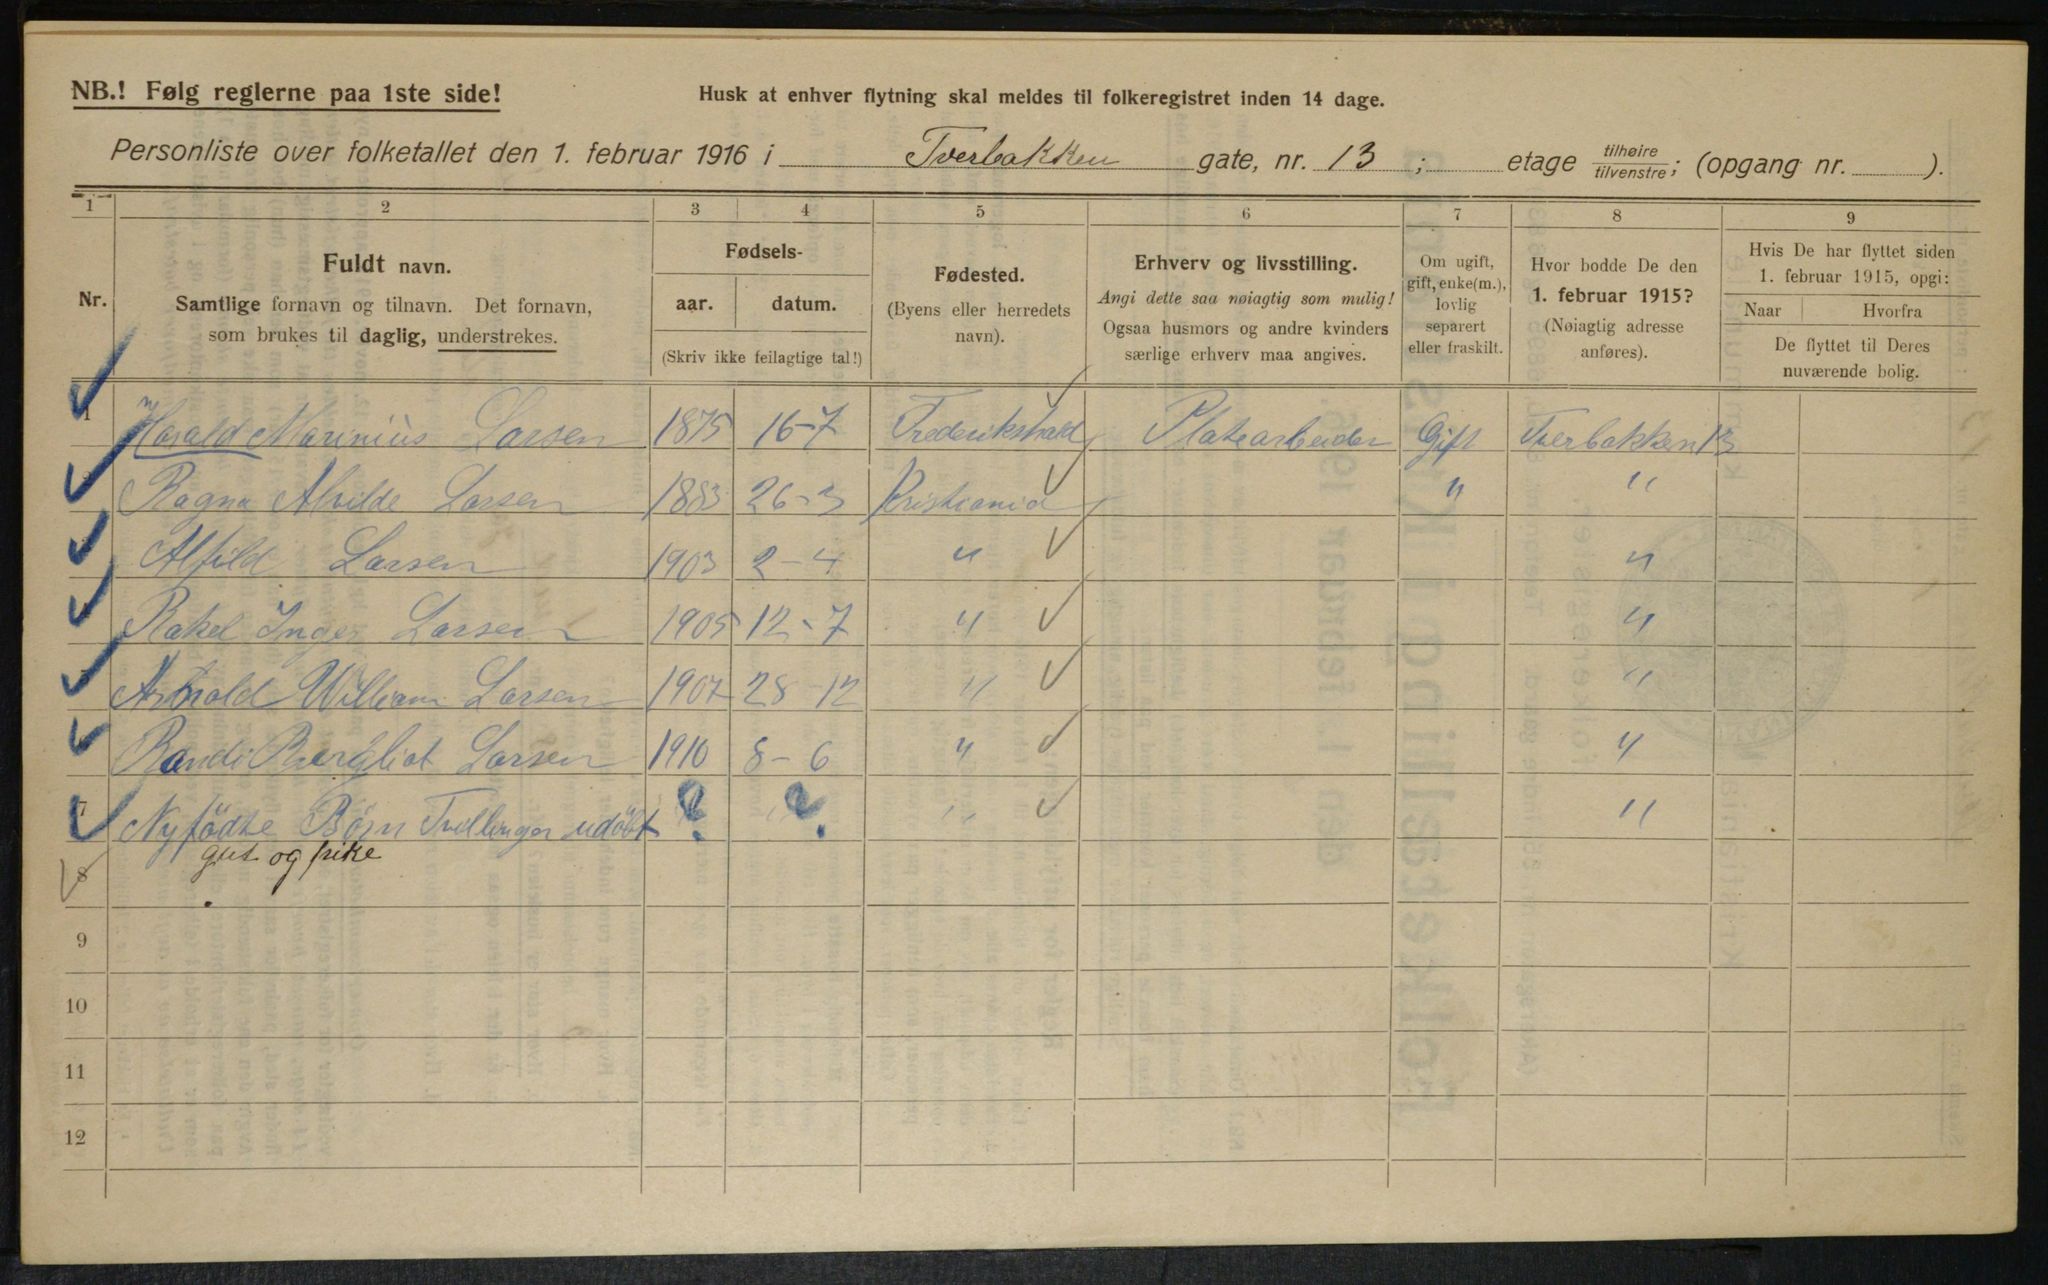 NB.! Følg reglerne paa 1ste side!
Husk at enhver flytning skal meldes til folkeregistret inden 14 dage.
Personliste over folketallet den 1. februar 1916 i Tverbakken gate, nr. 13 ; etage tilhøire tilvenstre ; (opgang nr. ).
1 2 3 4 5 6 7 8 9
Nr.
Fuldt navn.
Samtlige fornavn og tilnavn. Det fornavn,
som brukes til daglig, understrekes.
Fødsels-
aar. datum.
(Skriv ikke feilagtige tal!)
Fødested.
(Byens eller herredets
navn).
Erhverv og livsstilling.
Angi dette saa nøiagtig som mulig!
Ogsaa husmors og andre kvinders
særlige erhverv maa angives.
Om ugift,
gift, enke(m.),
lovlig
separert
eller fraskilt.
Hvor bodde De den
1. februar 1915?
(Nøiagtig adresse
anføres).
Hvis De har flyttet siden
1. februar 1915, opgi:
Naar Hvorfra
De flyttet til Deres
nuværende bolig.
1 Harald Marinius Larsen 1875 16-7 Frederikshald Platearbeider Gift Tverbakken 13
Ragna Alvilde Larsen 1883 26-3 Kristiania " "
Alfild Larsen 1903 2-4 " "
Rakel Inger Larsen 1905 12-7 " "
Arnold William Larsen 1907 28-12 " "
Randi Bergliot Larsen 1910 8-6 " "
7 Nyfødte Børn Tvillinger udöbt ? ? " "
gut og pike
8
9
10
11
12